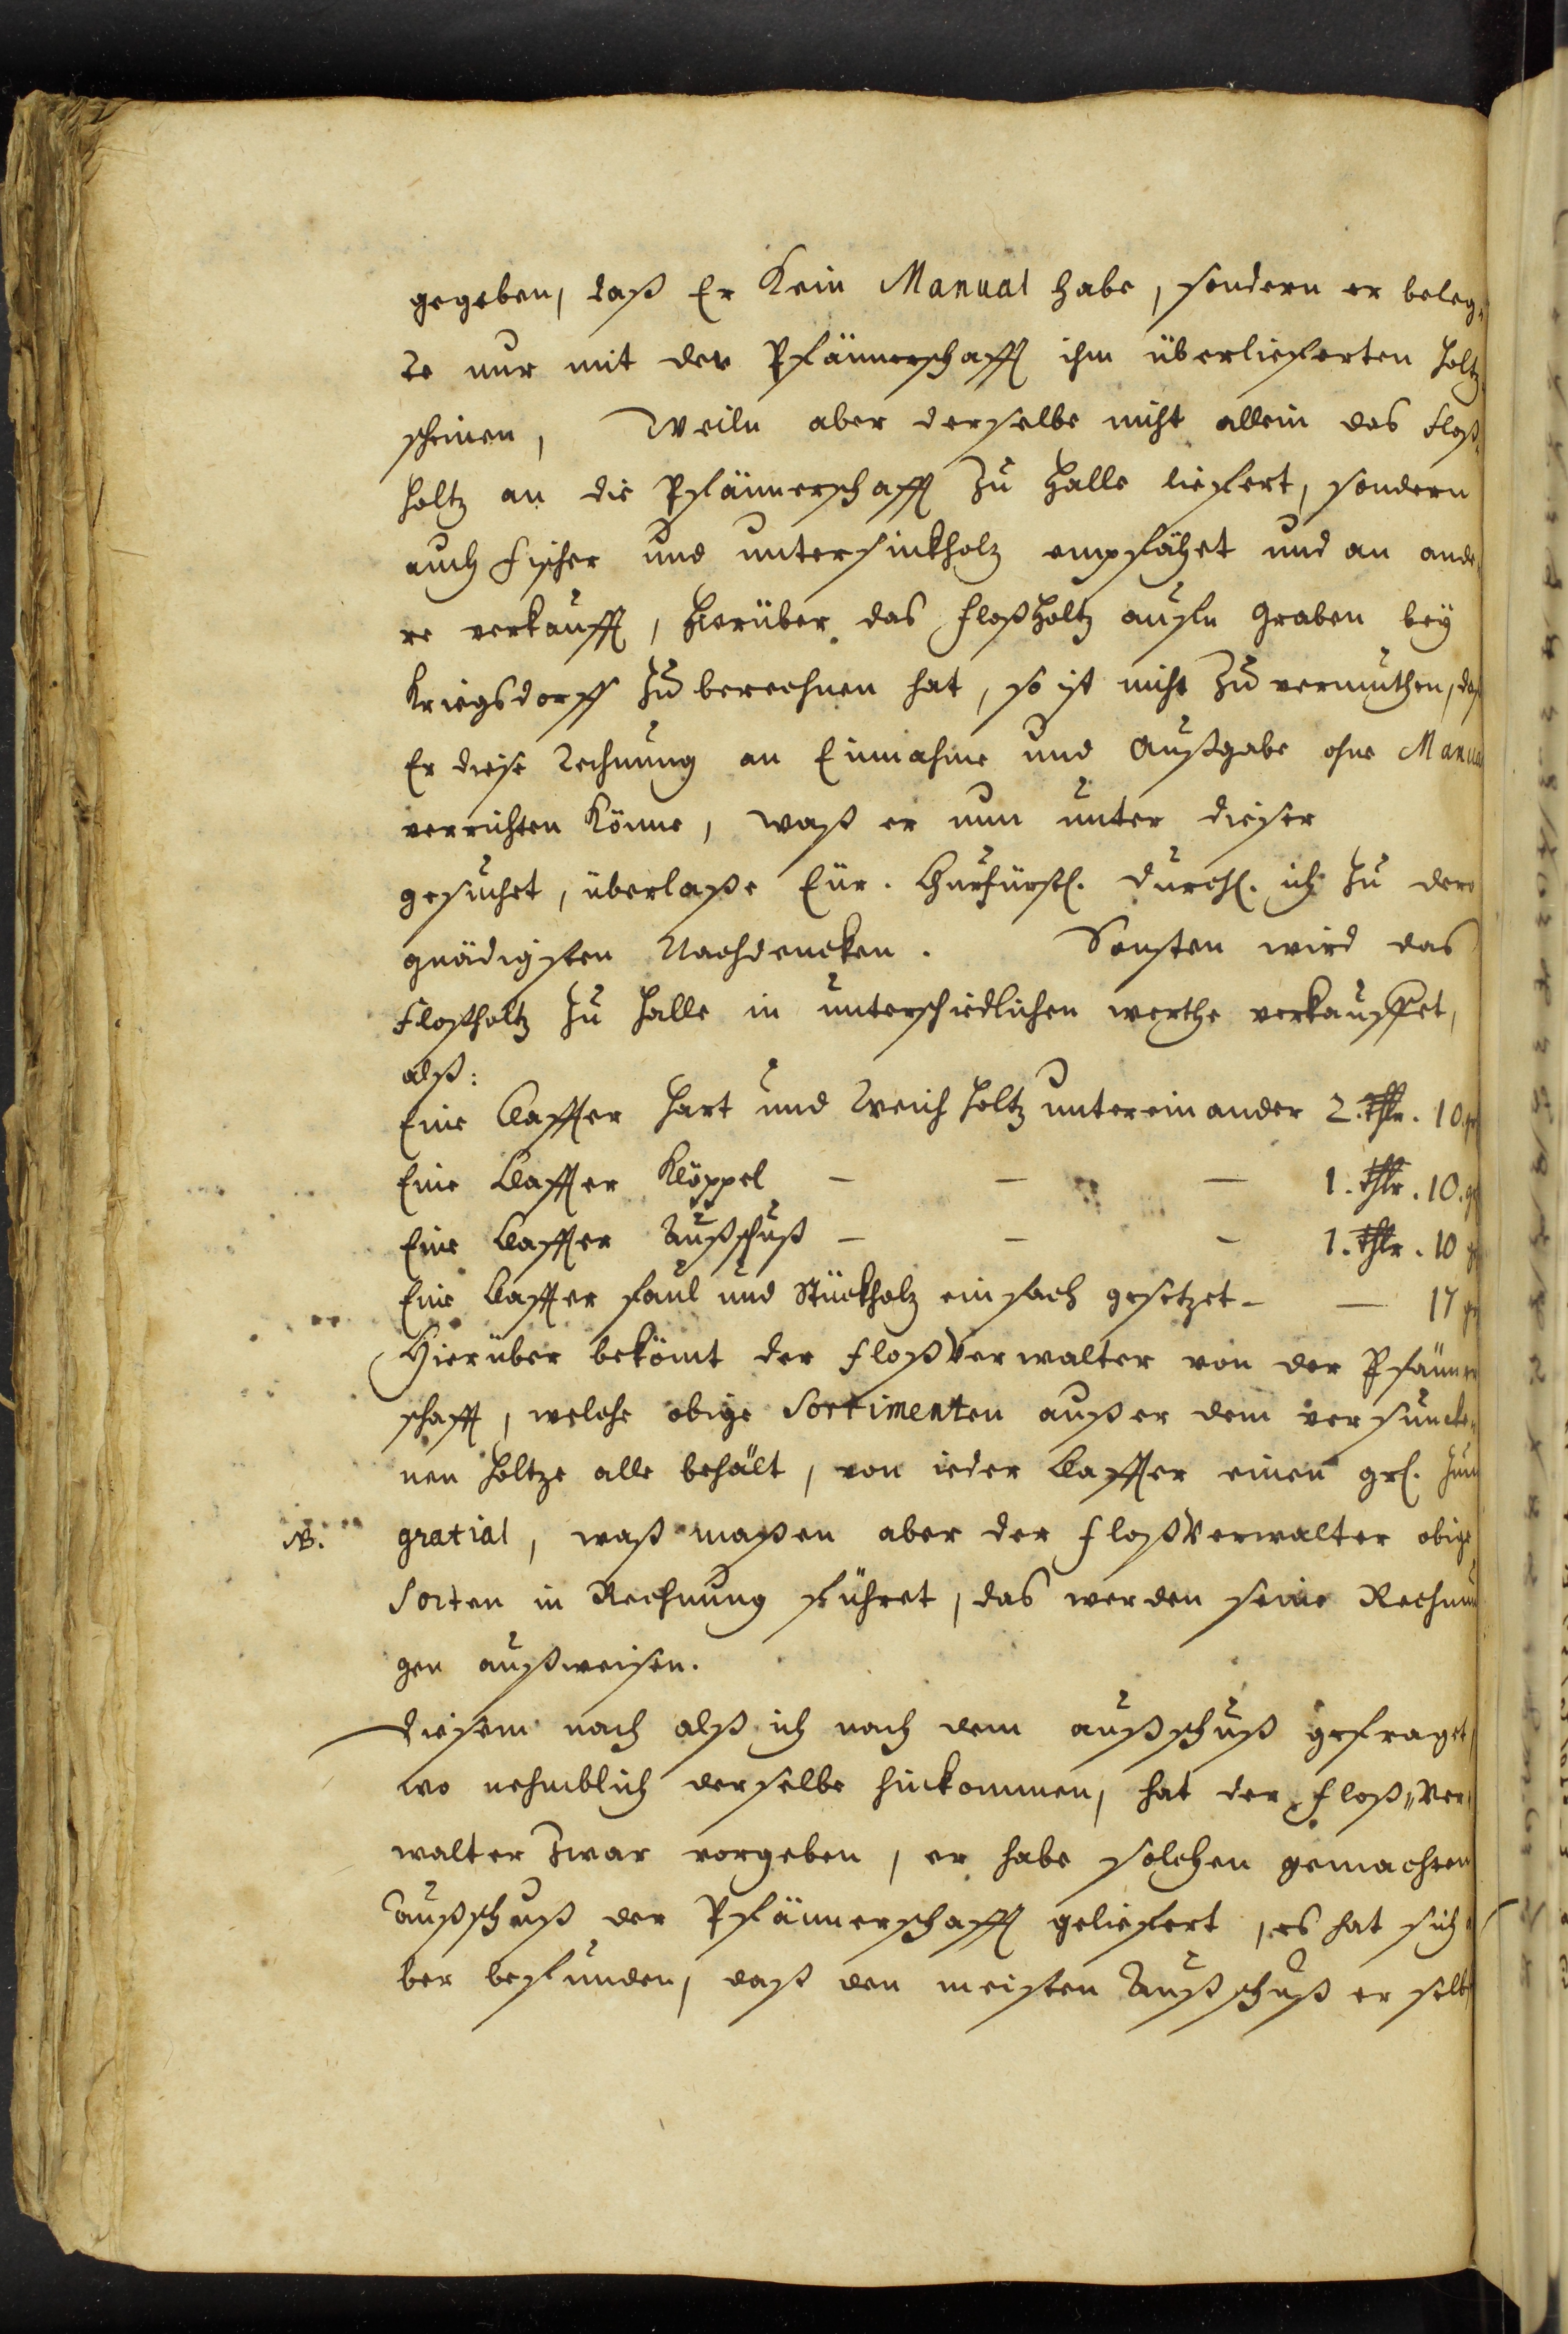 gegeben, daß Er Kein Manual habe, sondern er beleg„
te nur mit der Pfännerschafft ihm überlieferten holtz„
scheinen, Weiln aber derselbe nicht allein das Floß„
holtz an die Pfännerschafft Zu Halle liefert, sondern
auch Fischer und untersinkholz empfähet und an ande„
re verkaufft, hierüber das floßholtz aufln Graben bey
Kriegsdorff Zu berechnen hat, so ist nicht Zu vermuthen, daß
Er diese Rechnung an Einnahme und Außgabe ohne Manual
verrichten Könne, waß er nun unter dieser
gesuchet, überlaße Eür. Churfürstl. Durchl. ich Zu dero
gnädigsten Nachdencken. Sonsten wird das
Floßholtz Zu Halle in unterschiedlichen werthe verkauffet,
alß:
Eine Claffter hart und Weich holtz untereinander 2. Thlr. 10. gr
Eine Claffter Klöppel – – – 1. Thlr. 10. gr
Eine Claffter Außschuß – – – 1. Thlr. 10 gr
Eine Claffter faul und Stückholz einfach gesetzet – – 17 gr
Hierüber bekömt der FloßVerwalter von der Pfänner
schafft, welche obige Sortimenten außer dem versuncke„
nen holtze alle behält, von ieder Claffter einen grl. Zum
NB. gratial, waß maßen aber der FloßVerwalter obige
Sorten in Rechnung führet, das werden seine Rechnun
gen außweisen.
Diesem nach alß ich nach dem außschuß gefraget,
wo nehmblich derselbe hinkommen, hat der Floß„Ver„
walter Zwar vorgeben, er habe solchen gemachten
Außschuß der Pfännerschafft geliefert, es hat sich a
ber befunden, daß den meisten Außschuß er selbst